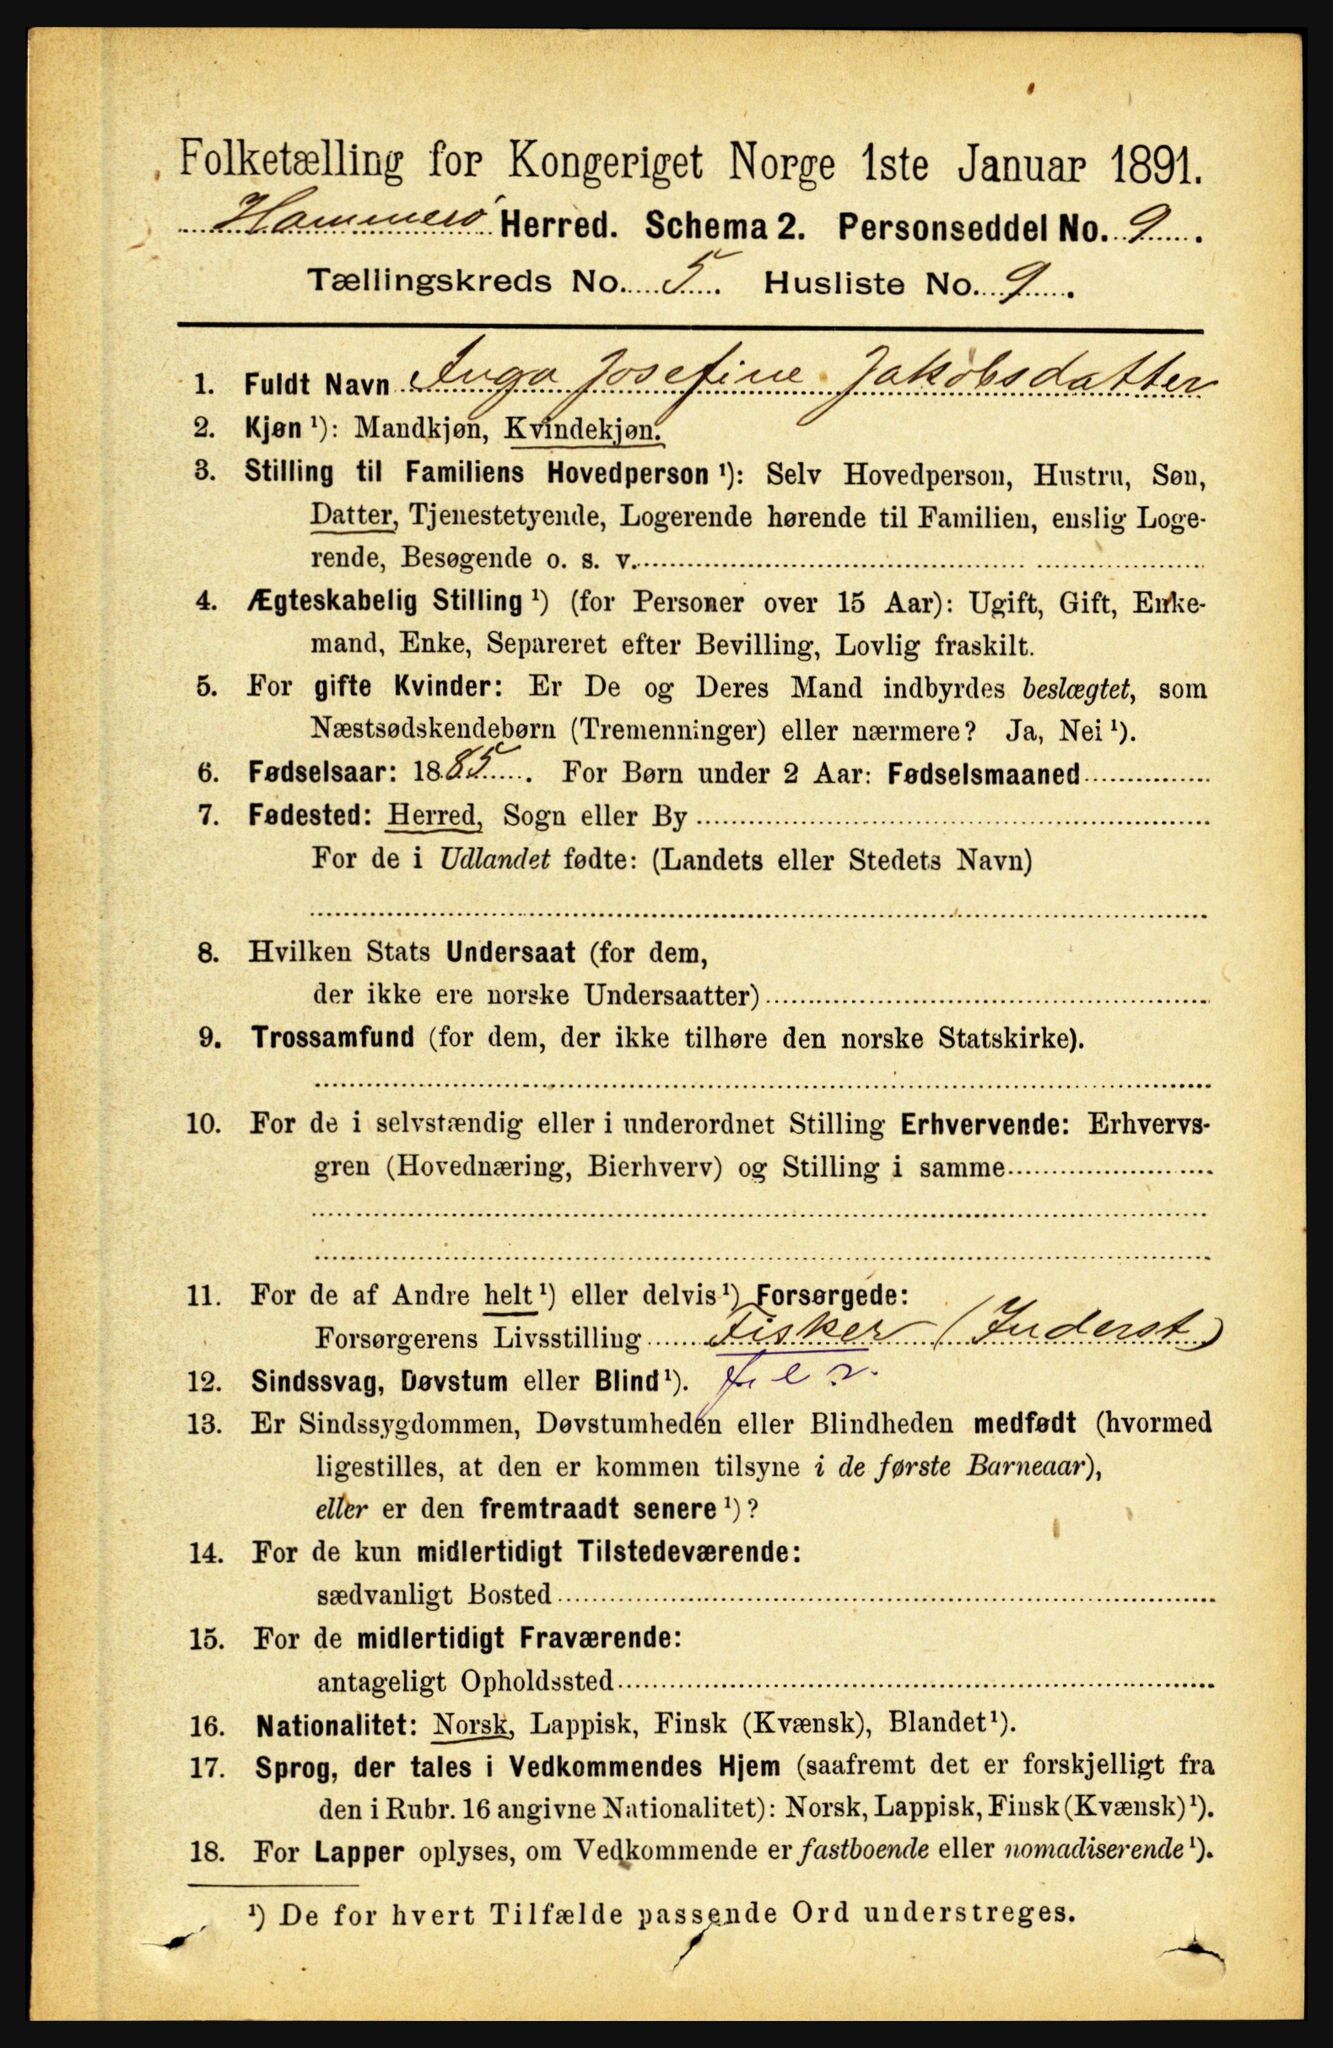 Folketælling for Kongeriget Norge 1ste Januar 1891.
Hammerø Herred. Schema 2. Personseddel No. 9.
Tællingskreds No. 5. Husliste No. 9.
1. Fuldt Navn Inga Josefine Jakobsdatter
2. Kjøn ¹): Mandkjøn, Kvindekjøn.
3. Stilling til Familiens Hovedperson ¹): Selv Hovedperson, Hustru, Søn,
Datter, Tjenestetyende, Logerende hørende til Familien, enslig Loge-
rende, Besøgende o. s. v.
4. Ægteskabelig Stilling ¹) (for Personer over 15 Aar): Ugift, Gift, Enke-
mand, Enke, Separeret efter Bevilling, Lovlig fraskilt.
5. For gifte Kvinder: Er De og Deres Mand indbyrdes beslægtet, som
Næstsødskendebørn (Tremenninger) eller nærmere? Ja, Nei ¹).
6. Fødselsaar: 1885. For Børn under 2 Aar: Fødselsmaaned
7. Fødested: Herred, Sogn eller By
For de i Udlandet fødte: (Landets eller Stedets Navn)
8. Hvilken Stats Undersaat (for dem,
der ikke ere norske Undersaatter)
9. Trossamfund (for dem, der ikke tilhøre den norske Statskirke).
10. For de i selvstændig eller i underordnet Stilling Erhvervende: Erhvervs-
gren (Hovednæring, Bierhverv) og Stilling i samme
11. For de af Andre helt ¹) eller delvis ¹) Forsørgede:
Forsørgerens Livsstilling Fisker (Inderst)
12. Sindssvag, Døvstum eller Blind ¹).
13. Er Sindssygdommen, Døvstumheden eller Blindheden medfødt (hvormed
ligestilles, at den er kommen tilsyne i de første Barneaar),
eller er den fremtraadt senere ¹)?
14. For de kun midlertidigt Tilstedeværende:
sædvanligt Bosted
15. For de midlertidigt Fraværende:
antageligt Opholdssted
16. Nationalitet: Norsk, Lappisk, Finsk (Kvænsk), Blandet ¹).
17. Sprog, der tales i Vedkommendes Hjem (saafremt det er forskjelligt fra
den i Rubr. 16 angivne Nationalitet): Norsk, Lappisk, Finsk (Kvænsk) ¹).
18. For Lapper oplyses, om Vedkommende er fastboende eller nomadiserende ¹).
¹) De for hvert Tilfælde passende Ord understreges.